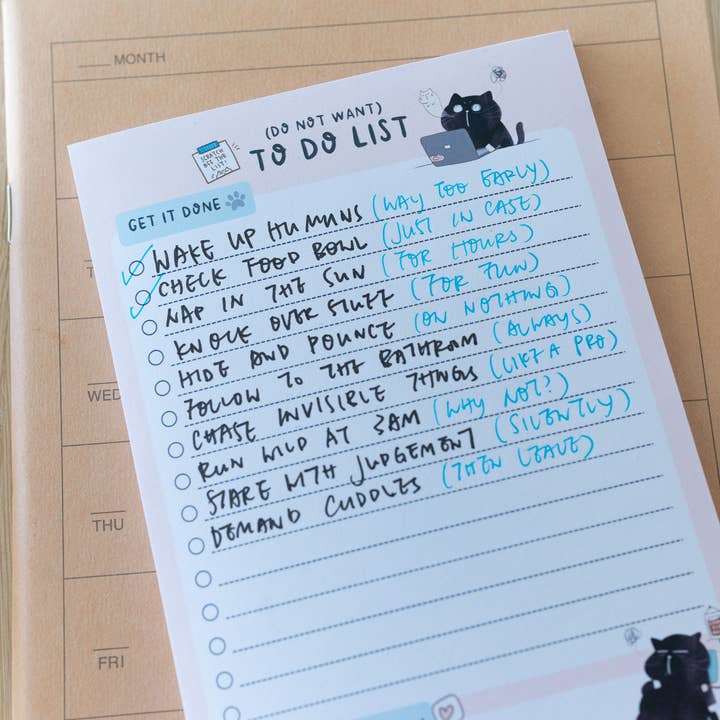 MONTH
(DO NOT WANT)
TO DO LIST
SCRATCH
OFF THE
LIST!
GET IT DONE
WAKE UP HUMANS (WAY TOO EARLY)
CHECK FOOD BOWL (JUST IN CASE)
NAP IN THE SUN (FOR HOURS)
KNOCK OVER STUFF (FOR FUN)
HIDE AND POUNCE (ON NOTHING)
FOLLOW TO THE BATHROOM (ALWAYS)
CHASE INVISIBLE THINGS (LIKE A PRO)
RUN WILD AT 3AM (WHY NOT?)
STARE WITH JUDGEMENT (SILENTLY)
DEMAND CUDDLES (THEN LEAVE)
WED
THU
FRI